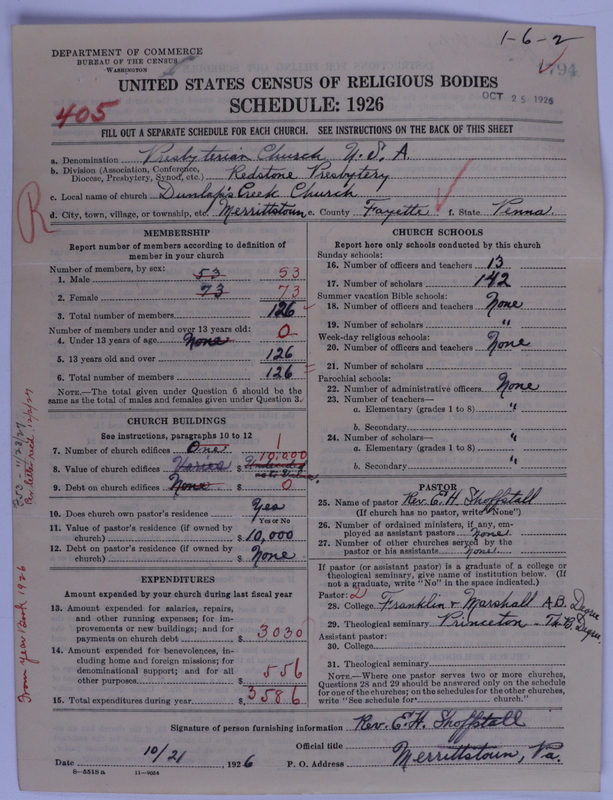 1-6-2
DEPARTMENT OF COMMERCE
BUREAU OF THE CENSUS
WASHINGTON
794
UNITED STATES CENSUS OF RELIGIOUS BODIES
OCT 25 1926
SCHEDULE: 1926
405
FILL OUT A SEPARATE SCHEDULE FOR EACH CHURCH. SEE INSTRUCTIONS ON THE BACK OF THIS SHEET
a. Denomination Presbyterian Church U. S. A.
b. Division (Association, Conference, Diocese, Presbytery, Synod, etc.) Redstone Presbytery
c. Local name of church Dunlap's Creek Church
d. City, town, village, or township, etc. Merrittstown e. County Fayette f. State Penna.
R
MEMBERSHIP
Report number of members according to definition of
member in your church
Number of members, by sex:
1. Male 53 53
2. Female 73 73
3. Total number of members 126
Number of members under and over 13 years old:
4. Under 13 years of age None 0
5. 13 years old and over 126
6. Total number of members 126
NOTE.—The total given under Question 6 should be
same as the total of males and females given under Question 3.
CHURCH BUILDINGS
See instructions, paragraphs 10 to 12
7. Number of church edifices One 1
8. Value of church edifices $ 10,000
9. Debt on church edifices None $ 0
10. Does church own pastor's residence Yes
Yes or No
11. Value of pastor's residence (if owned by
church) $ 10,000
12. Debt on pastor's residence (if owned by
church) $ None
EXPENDITURES
Amount expended by your church during last fiscal year
13. Amount expended for salaries, repairs,
and other running expenses; for im-
provements or new buildings; and for
payments on church debt $ 3030
14. Amount expended for benevolences, in-
cluding home and foreign missions; for
denominational support; and for all
other purposes $ 556
15. Total expenditures during year $ 3586
CHURCH SCHOOLS
Report here only schools conducted by this church
Sunday schools:
16. Number of officers and teachers 13
17. Number of scholars 142
Summer vacation Bible schools:
18. Number of officers and teachers None
19. Number of scholars "
Week-day religious schools:
20. Number of officers and teachers None
21. Number of scholars
Parochial schools:
22. Number of administrative officers None
23. Number of teachers—
a. Elementary (grades 1 to 8) "
b. Secondary
24. Number of scholars— "
a. Elementary (grades 1 to 8) "
b. Secondary "
PASTOR
25. Name of pastor Rev. E. H. Shoffstall
(If church has no pastor, write "No")
26. Number of ordained ministers, if any, em-
ployed as assistant pastors None
27. Number of other churches served by the
pastor or his assistants None
If pastor (or assistant pastor) is a graduate of a college or
theological seminary, give name of institution below. (If
not a graduate, write "No" in the space indicated.)
Pastor:
28. College Franklin & Marshall A.B. Degree
29. Theological seminary Princeton - Th.B. Degree
Assistant pastor:
30. College
31. Theological seminary
NOTE.—Where one pastor serves two or more churches,
Questions 28 and 29 should be answered only on the schedule
for one of the churches; on the schedules for the other churches,
write "See schedule for church."
Signature of person furnishing information Rev. E. H. Shoffstall
Official title
Date 10/21 1926 P. O. Address Merrittstown, Pa.
8-5518a 11-9054
From year book 1926